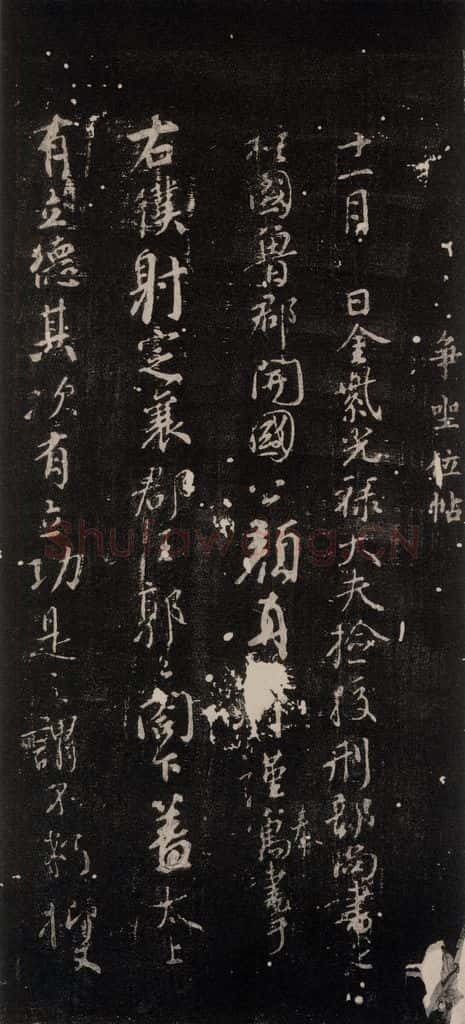 争坐位帖
十一月 日金紫光祿大夫檢挍刑部尚書上
柱國魯郡開國公顏真 謹奉寓書于
右僕射定襄郡王郭公閣下蓋太上
有立德其次有立功是之謂不朽抑又
Shufawang.CN